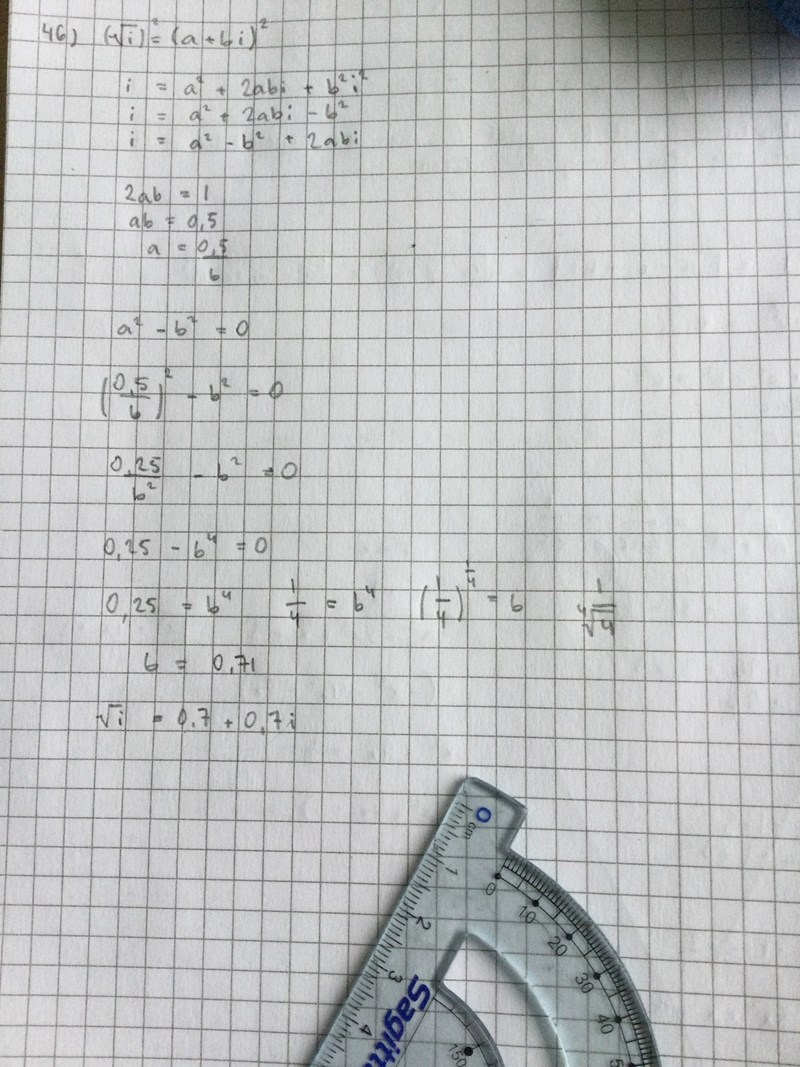 46) (√i)² = (a + bi)²
i = a² + 2abi + b²i²
i = a² + 2abi - b²
i = a² - b² + 2abi
2ab = 1
ab = 0,5
a = 0,5/b
a² - b² = 0
(0,5/b)² - b² = 0
0,25/b² - b² = 0
0,25 - b⁴ = 0
0,25 = b⁴ 1/4 = b⁴ (1/4)^(1/4) = b 1/⁴√4
b = 0,71
√i = 0.7 + 0,7i
0 cm 1 2 3 4
0 10 20 30 40 5
150
Sagitt